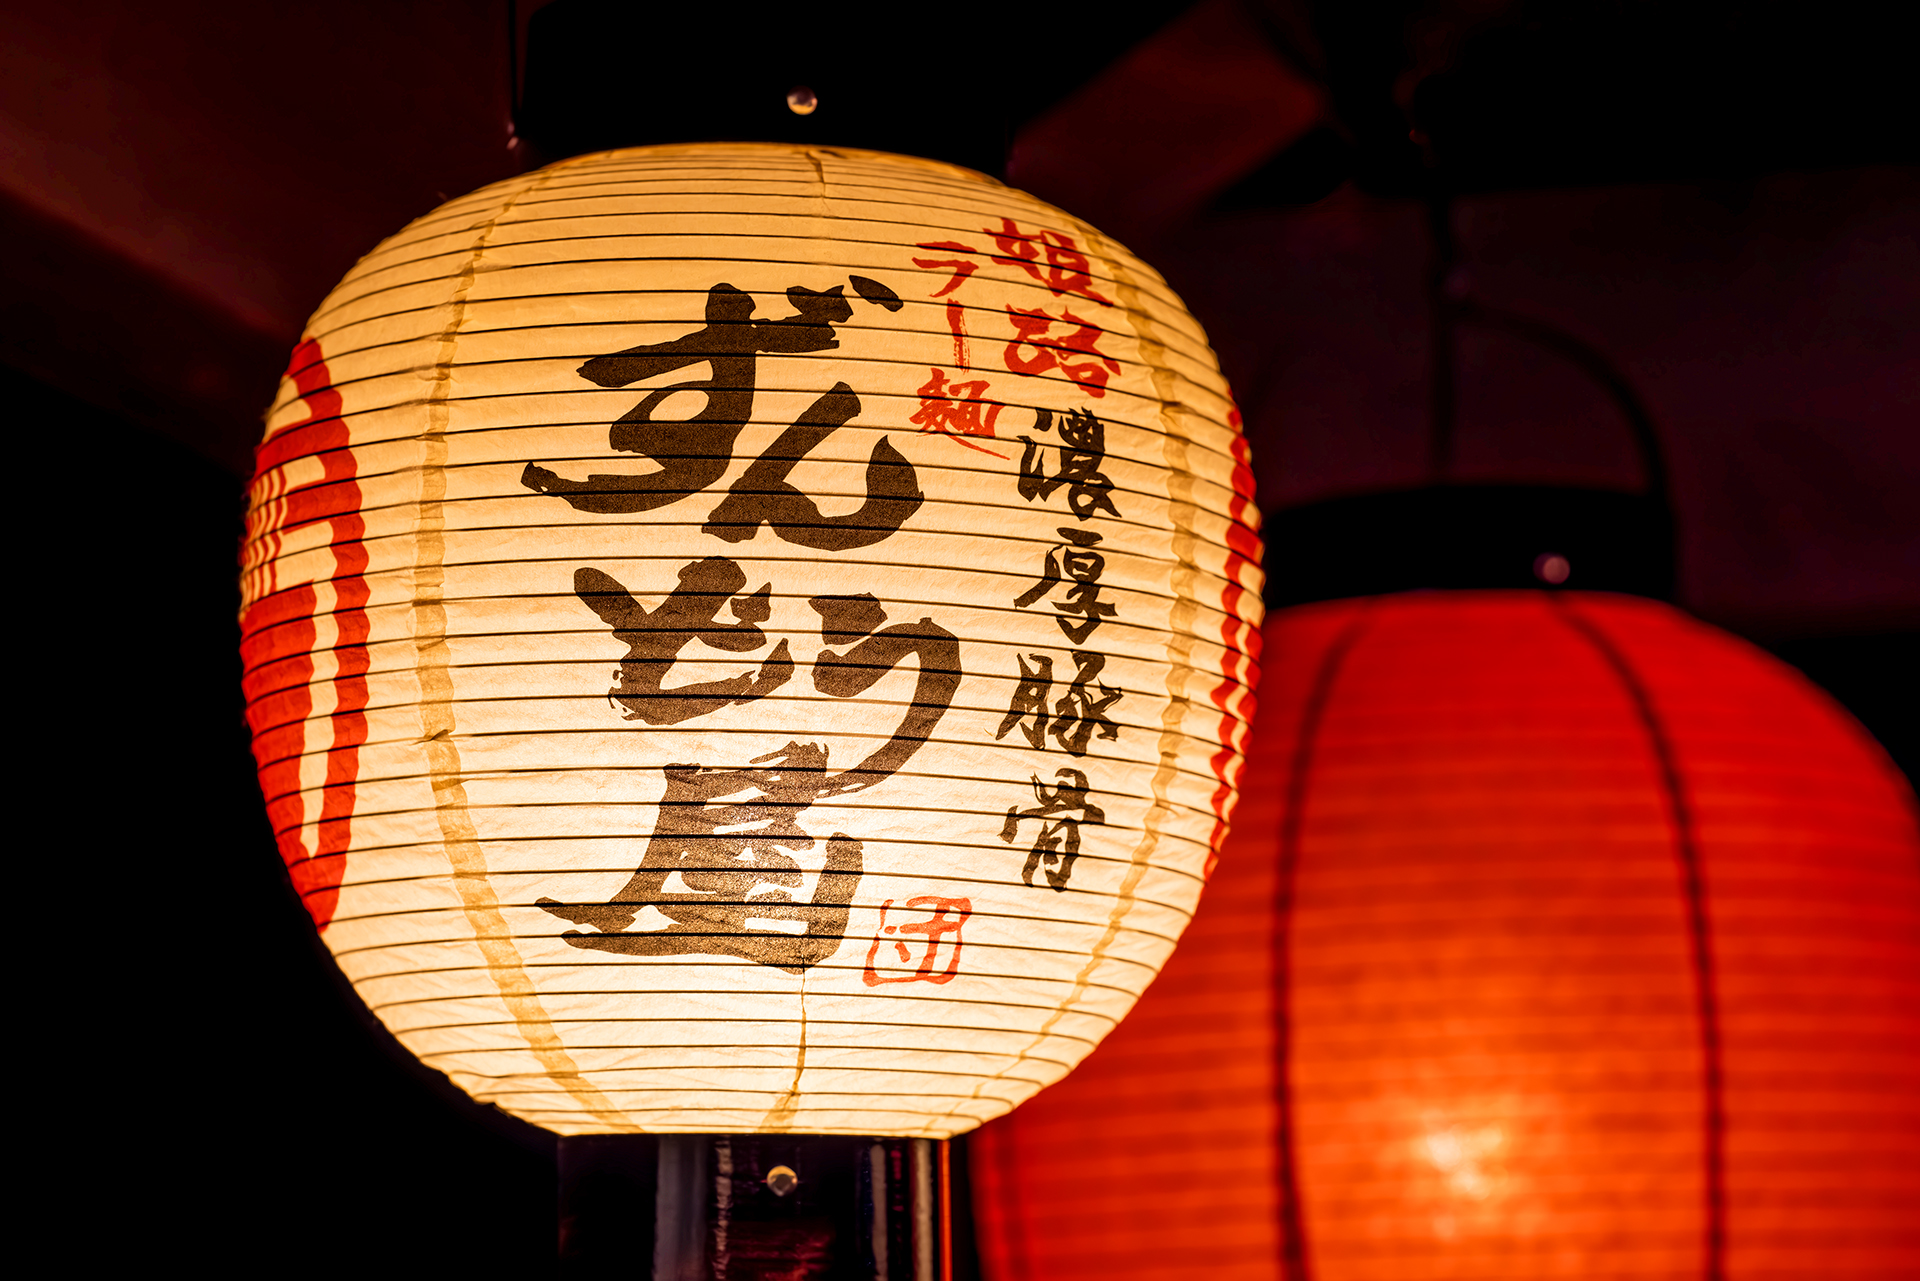 姫路
濃厚豚骨
ラー麺
ずんどう屋
団